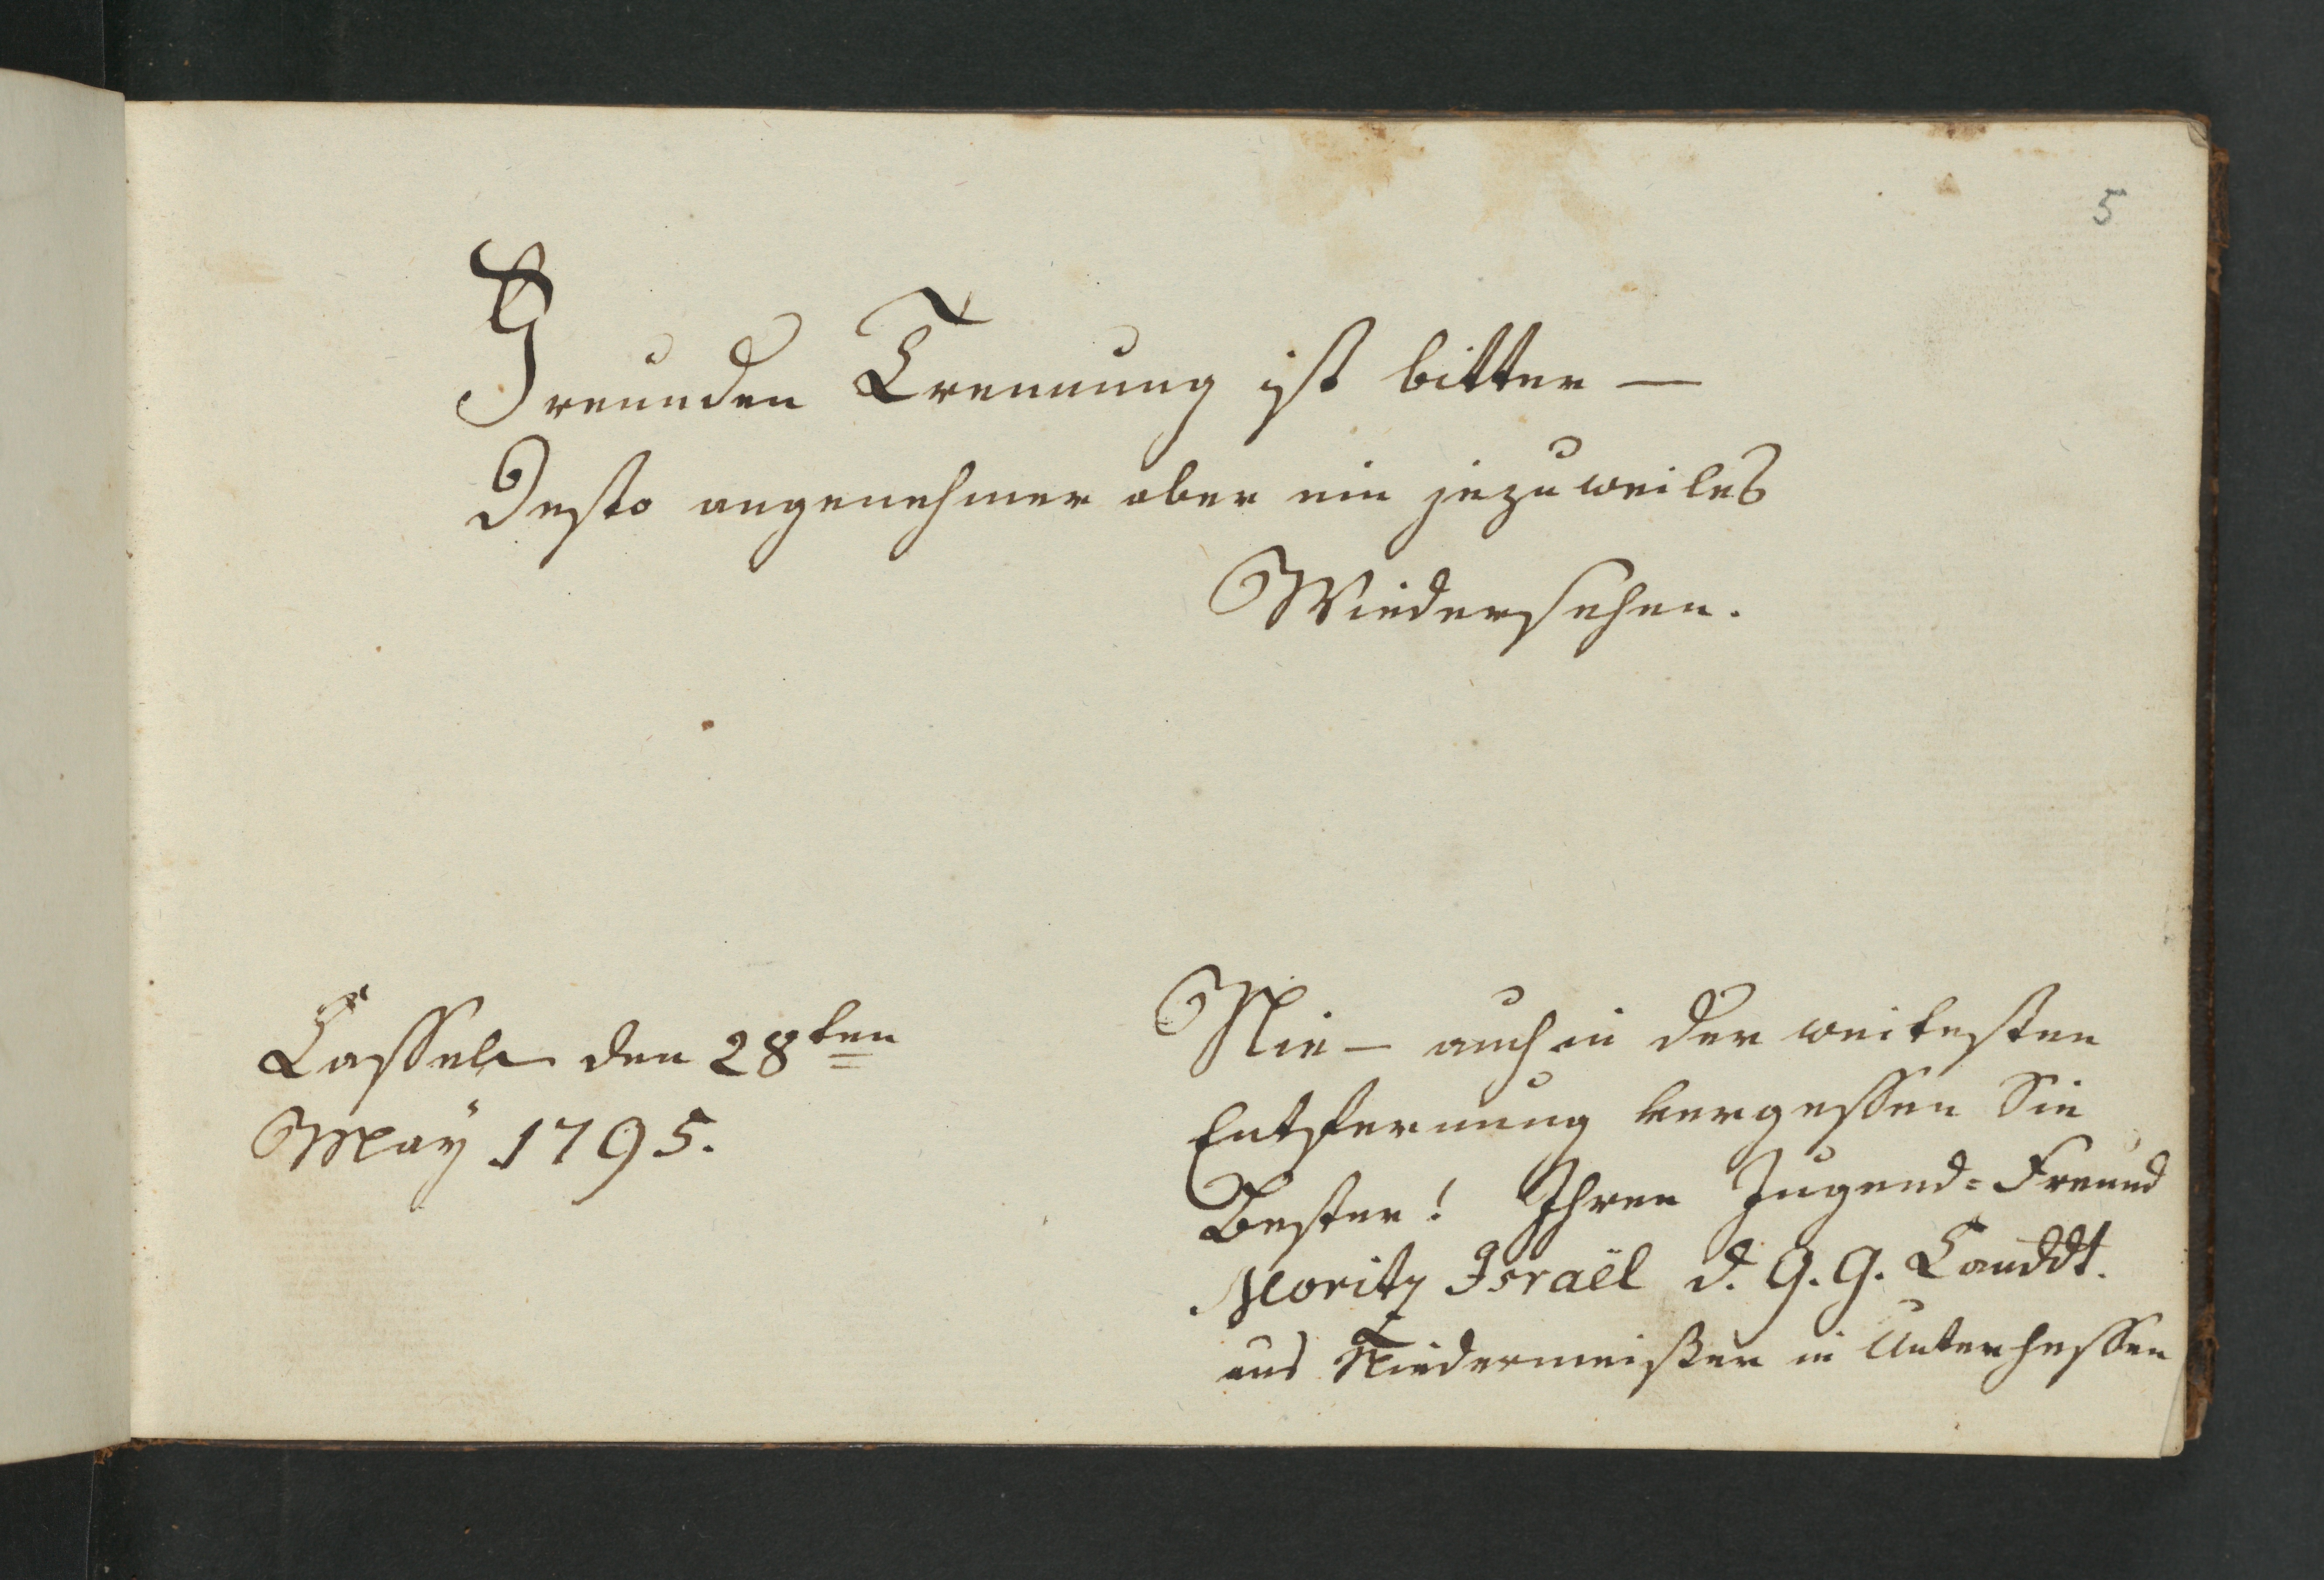 5
Freunden Trennung ist bitter —
Desto angenehmer aber ein jezuweiles
Wiedersehen.
Cassel den 28ten
May 1795.
Nie — auch in der weitesten
Entfernung vergessen Sie
Bester! Ihren Jugend=Freund
Moritz Israël d. G. G. Canddt.
aus Niedermeißer in Unterhessen